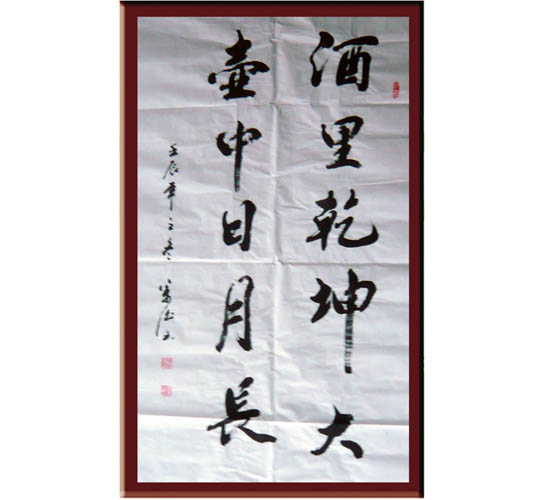 酒里乾坤大
壶中日月長
壬辰年之冬